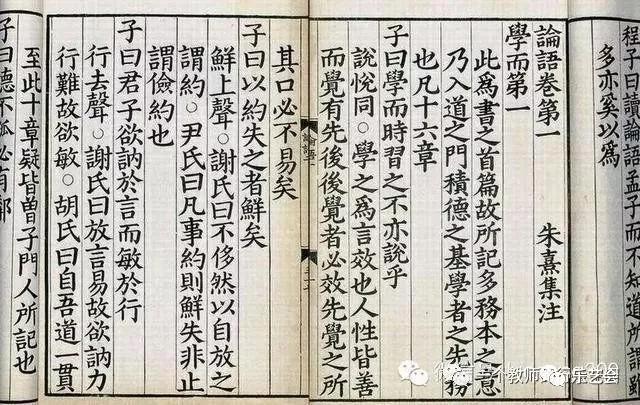 程子曰讀論語孟子而不知道所謂
多亦奚以爲
論語卷第一 朱熹集注
學而第一
此爲書之首篇故所記多務本之意
乃入道之門積德之基學者之先務
也凡十六章
子曰學而時習之不亦說乎
說悅同○學之爲言效也人性皆善
而覺有先後後覺者必效先覺之所
論語
其口必不易矣
子曰以約失之者鮮矣
鮮上聲○謝氏曰不侈然以自放之
謂約○尹氏曰凡事約則鮮失非止
謂儉約也
子曰君子欲訥於言而敏於行
行去聲○謝氏曰放言易故欲訥力
行難故欲敏○胡氏曰自吾道一貫
至此十章疑皆曾子門人所記也
子曰德不孤必有鄰
不教师 乐艺会